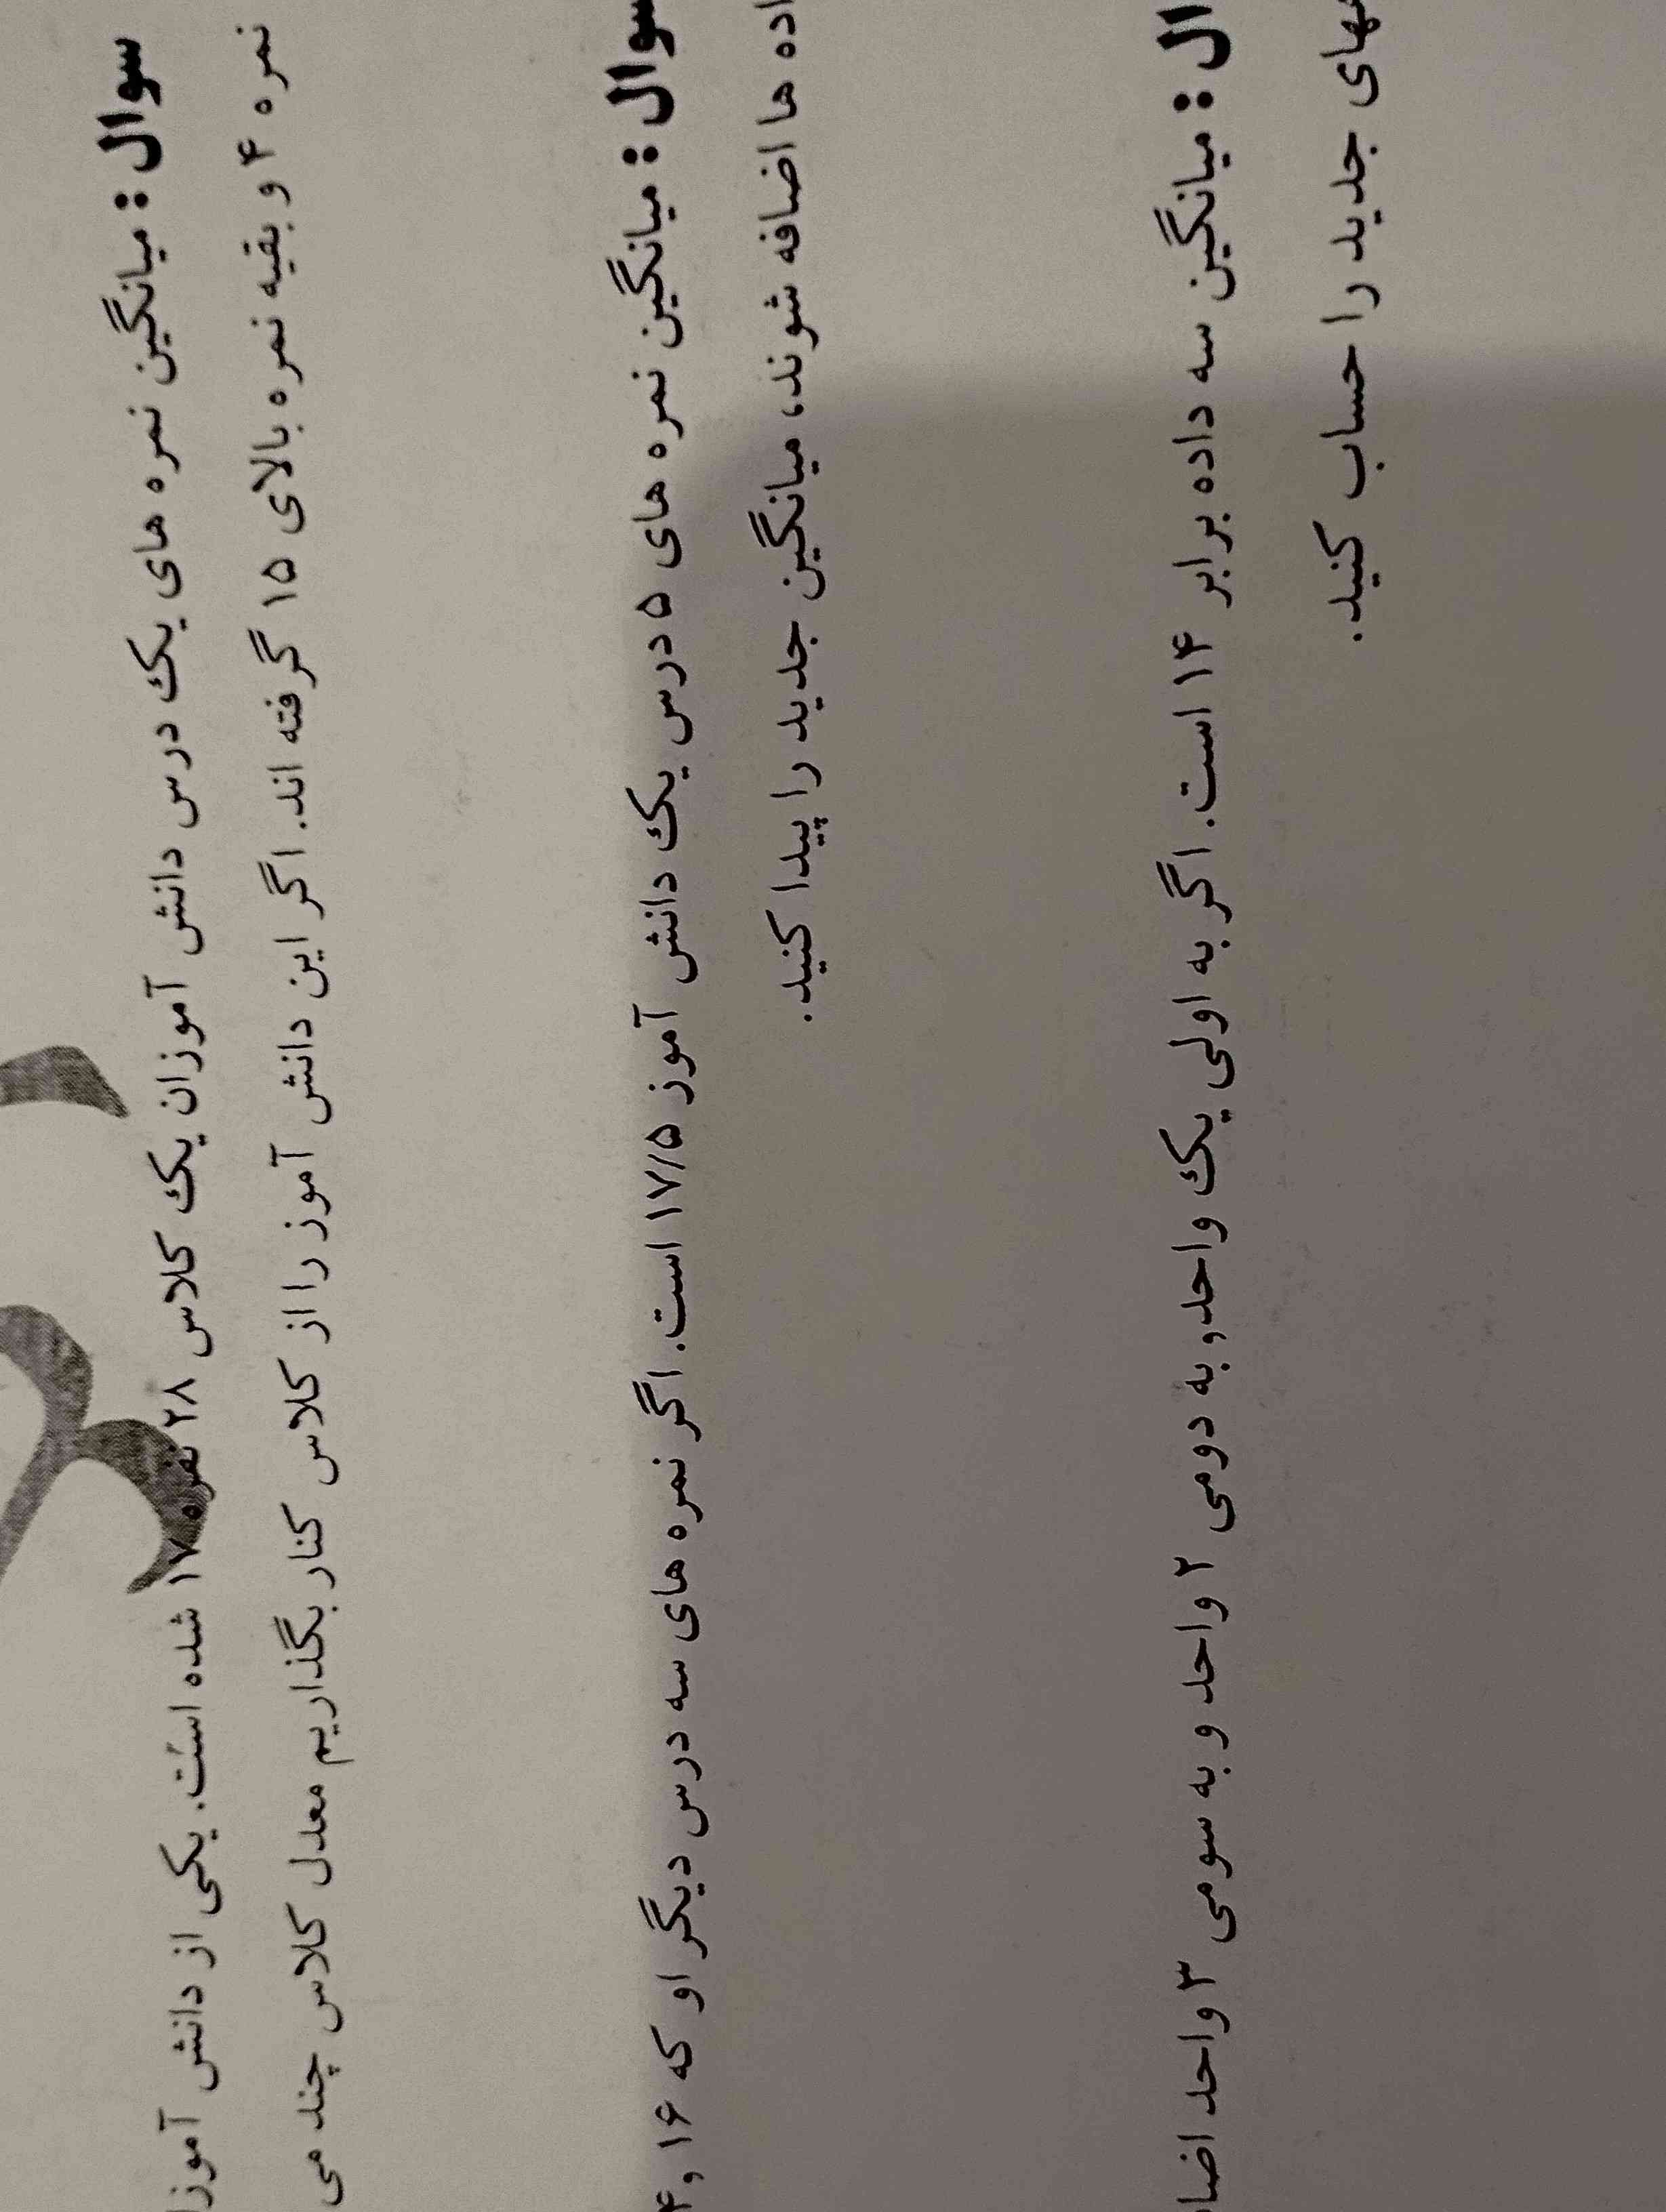 سوال : میانگین نمره های یک درس دانش آموزان یک کلاس ۲۸ نفره ۱۷ شده است. یکی از دانش آموزا
نمره ۴ و بقیه نمره بالای ۱۵ گرفته اند. اگر این دانش آموز را از کلاس کنار بگذاریم معدل کلاس چند می
سوال : میانگین نمره های ۵ درس یک دانش آموز ۱۷/۵ است. اگر نمره های سه درس دیگر او که ۱۶ و
اده ها اضافه شوند، میانگین جدید را پیدا کنید.
ال : میانگین سه داده برابر ۱۴ است. اگر به اولی یک واحد، به دومی ۲ واحد و به سومی ۳ واحد اضا
های جدید را حساب کنید.